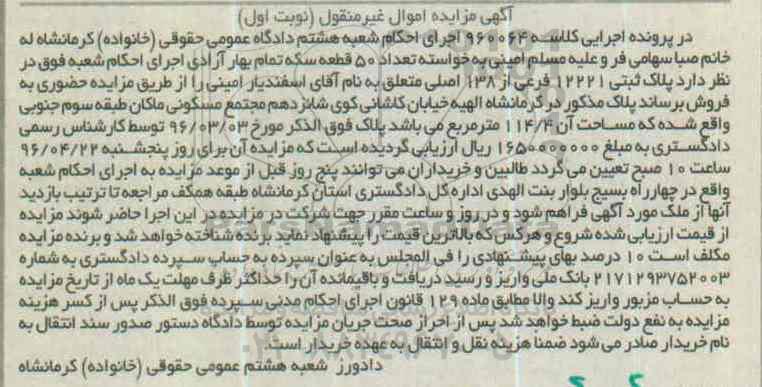 آگهی مزایده اموال غیرمنقول (نوبت اول)
در پرونده اجرایی کلاسه ۹۶۰۰۶۴ اجرای احکام شعبه هشتم دادگاه عمومی حقوقی (خانواده) کرمانشاه له
خانم صبا سهامی فر و علیه مسلم امینی به خواسته تعداد ۵۰ قطعه سکه تمام بهار آزادی اجرای احکام شعبه فوق در
نظر دارد پلاک ثبتی ۱۲۲۲۱ فرعی از ۱۳۸ اصلی متعلق به نام آقای اسفندیار امینی را از طریق مزایده حضوری به
فروش برساند پلاک مذکور در کرمانشاه الهیه خیابان کاشانی کوی شانزدهم مجتمع مسکونی ماکان طبقه سوم جنوبی
واقع شده که مساحت آن ۱۱۴/۴ مترمربع می باشد پلاک فوق الذکر مورخ ۹۶/۰۳/۰۳ توسط کارشناس رسمی
دادگستری به مبلغ ۱۶۵۰۰۰۰۰۰۰ ریال ارزیابی گردیده است که مزایده آن برای روز پنجشنبه ۹۶/۰۴/۲۲
ساعت ۱۰ صبح تعیین می گردد طالبین و خریداران می توانند پنج روز قبل از موعد مزایده به اجرای احکام شعبه
واقع در چهارراه بسیج بلوار بنت الهدی اداره کل دادگستری استان کرمانشاه طبقه همکف مراجعه تا ترتیب بازدید
آنها از ملک مورد آگهی فراهم شود و در روز و ساعت مقرر جهت شرکت در مزایده در این اجرا حاضر شوند مزایده
از قیمت ارزیابی شده شروع و هرکس که بالاترین قیمت را پیشنهاد نماید برنده شناخته خواهد شد و برنده مزایده
مکلف است ۱۰ درصد بهای پیشنهادی را فی المجلس به عنوان سپرده به حساب سپرده دادگستری به شماره
۲۱۷۱۲۹۳۷۵۲۰۰۳ بانک ملی واریز و رسید دریافت و باقیمانده آن را حداکثر ظرف مهلت یک ماه از تاریخ مزایده
به حساب مزبور واریز کند والا مطابق ماده ۱۲۹ قانون اجرای احکام مدنی سپرده فوق الذکر پس از کسر هزینه
مزایده به نفع دولت ضبط خواهد شد پس از احراز صحت جریان مزایده توسط دادگاه دستور صدور سند انتقال به
نام خریدار صادر می شود ضمنا هزینه نقل و انتقال به عهده خریدار است.
دادورز شعبه هشتم عمومی حقوقی (خانواده) کرمانشاه